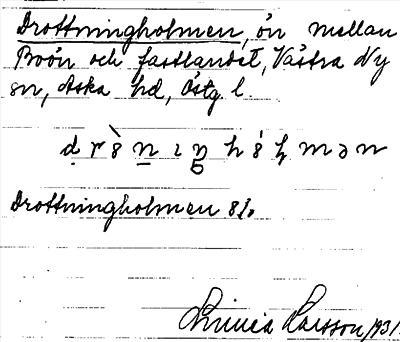 Drottningholmen, ön mellan
Boön och fastlandet, Västra Ny
sn, Aska hd, Östg. l.
Drottningholmen 8/0
Linnéa Larsson 1931.